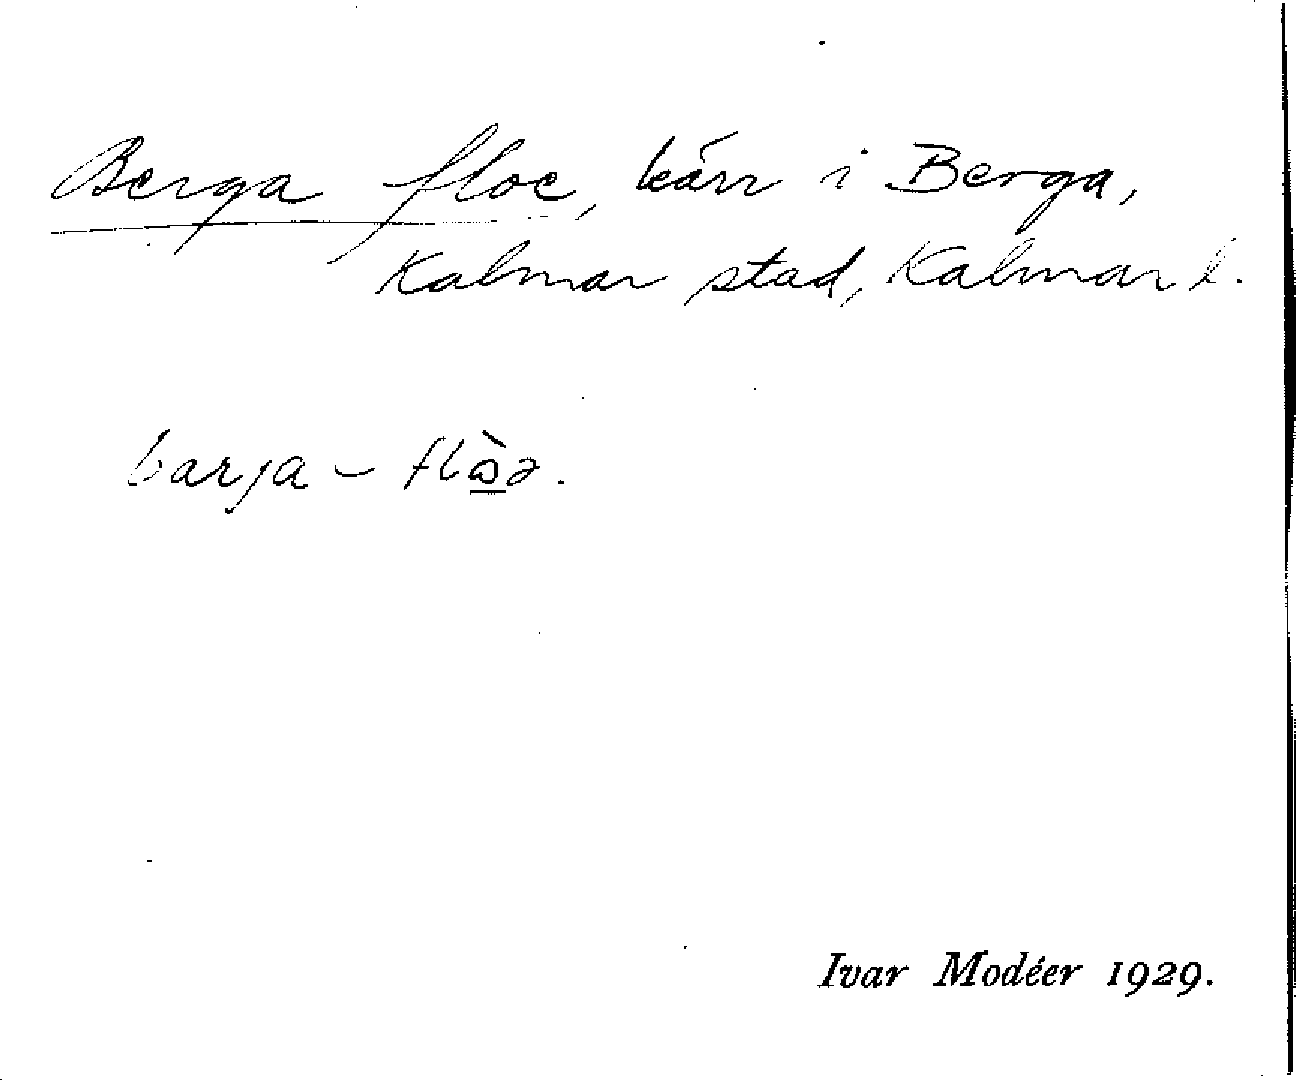 Berga floe, kärr i Berga,
Kalmar stad, Kalmar l.
barja - flὼə.
Ivar Modéer 1929.